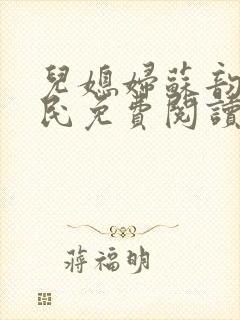 兒媳婦蘇韵
民免費閱讀
蔣福明